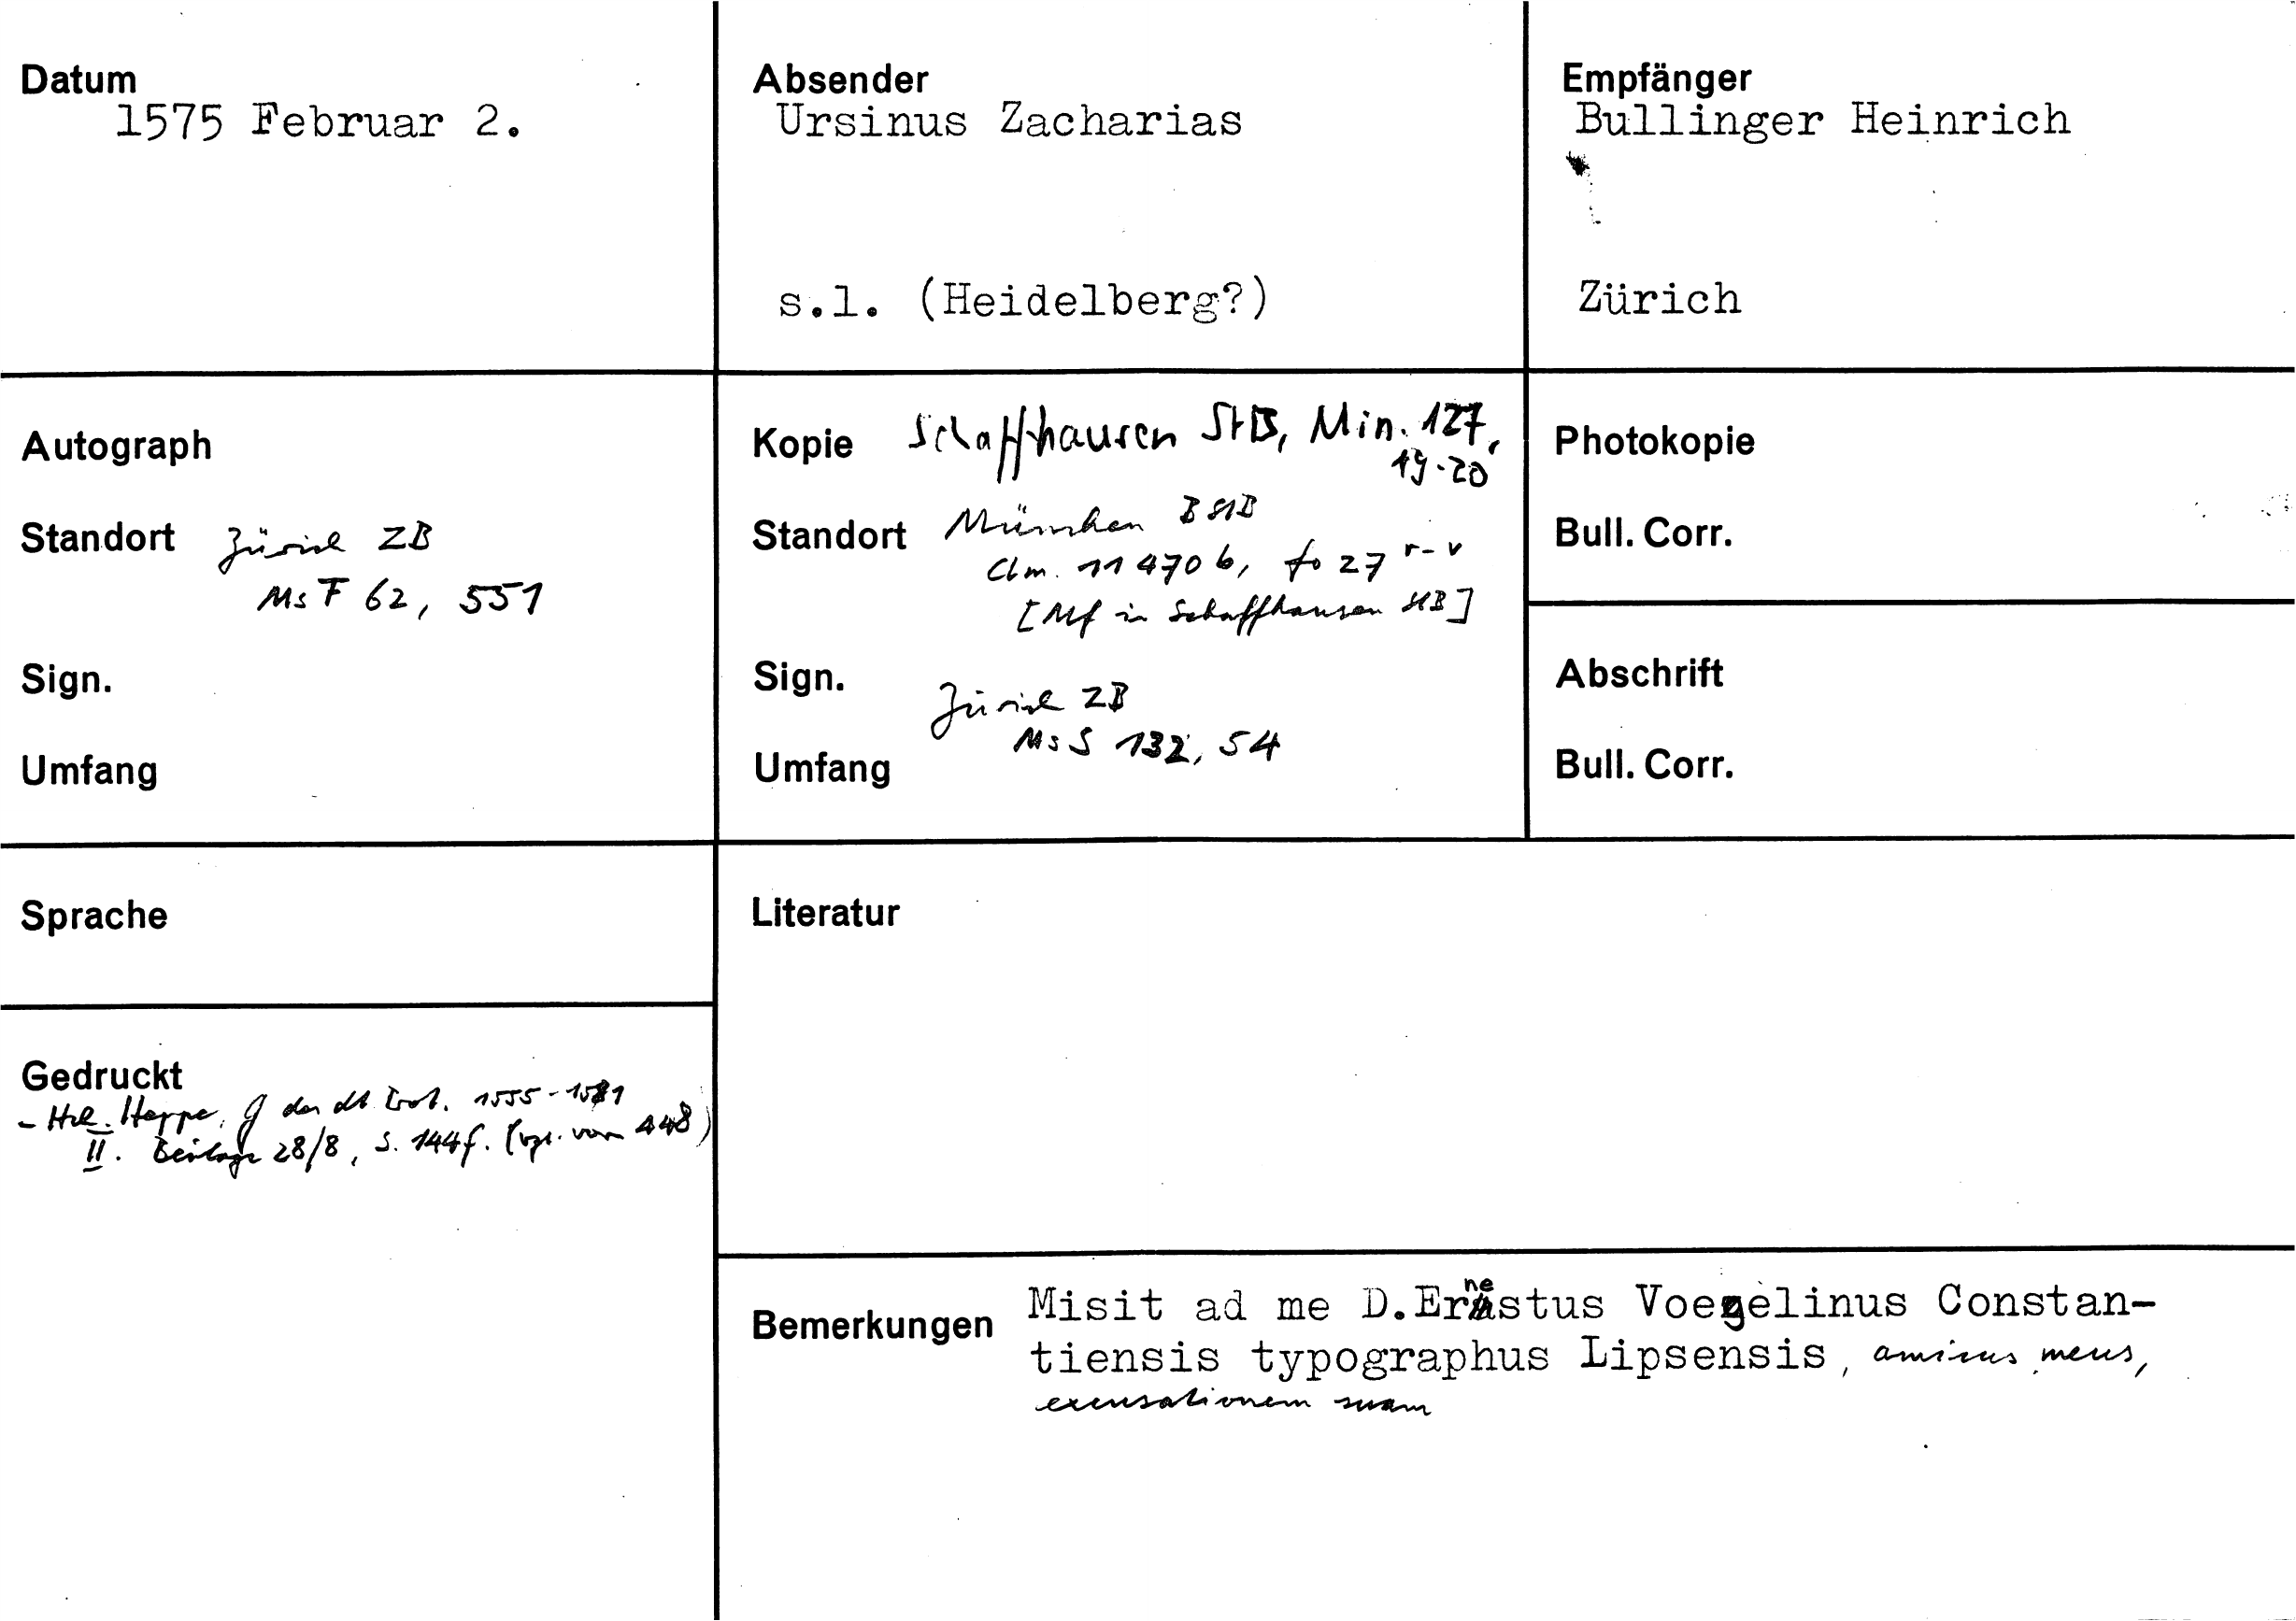 Datum
1575 Februar 2.
Absender
Ursinus Zacharias
s.l. (Heidelberg?)
Empfänger
Bullinger Heinrich
Zürich
Autograph
Standort Zürich ZB
Ms F 62, 551
Sign.
Umfang
Kopie Schaffhausen StB, Min. 127,
19-20
Standort München BStB
Clm. 11 470 b, fo 27 r-v
[Mf in Schaffhausen StB]
Sign.
Zürich ZB
Ms S 132, 54
Umfang
Photokopie
Bull. Corr.
Abschrift
Bull. Corr.
Sprache
Literatur
Gedruckt
- Hch. Heppe, G des dt Prot. 1555-1581
II. Beilage 28/8, S. 144f. (vgl. 448)
Bemerkungen Misit ad me D.Ernestus Voegelinus Constan-
tiensis typographus Lipsensis, amicus meus,
excusationem suam